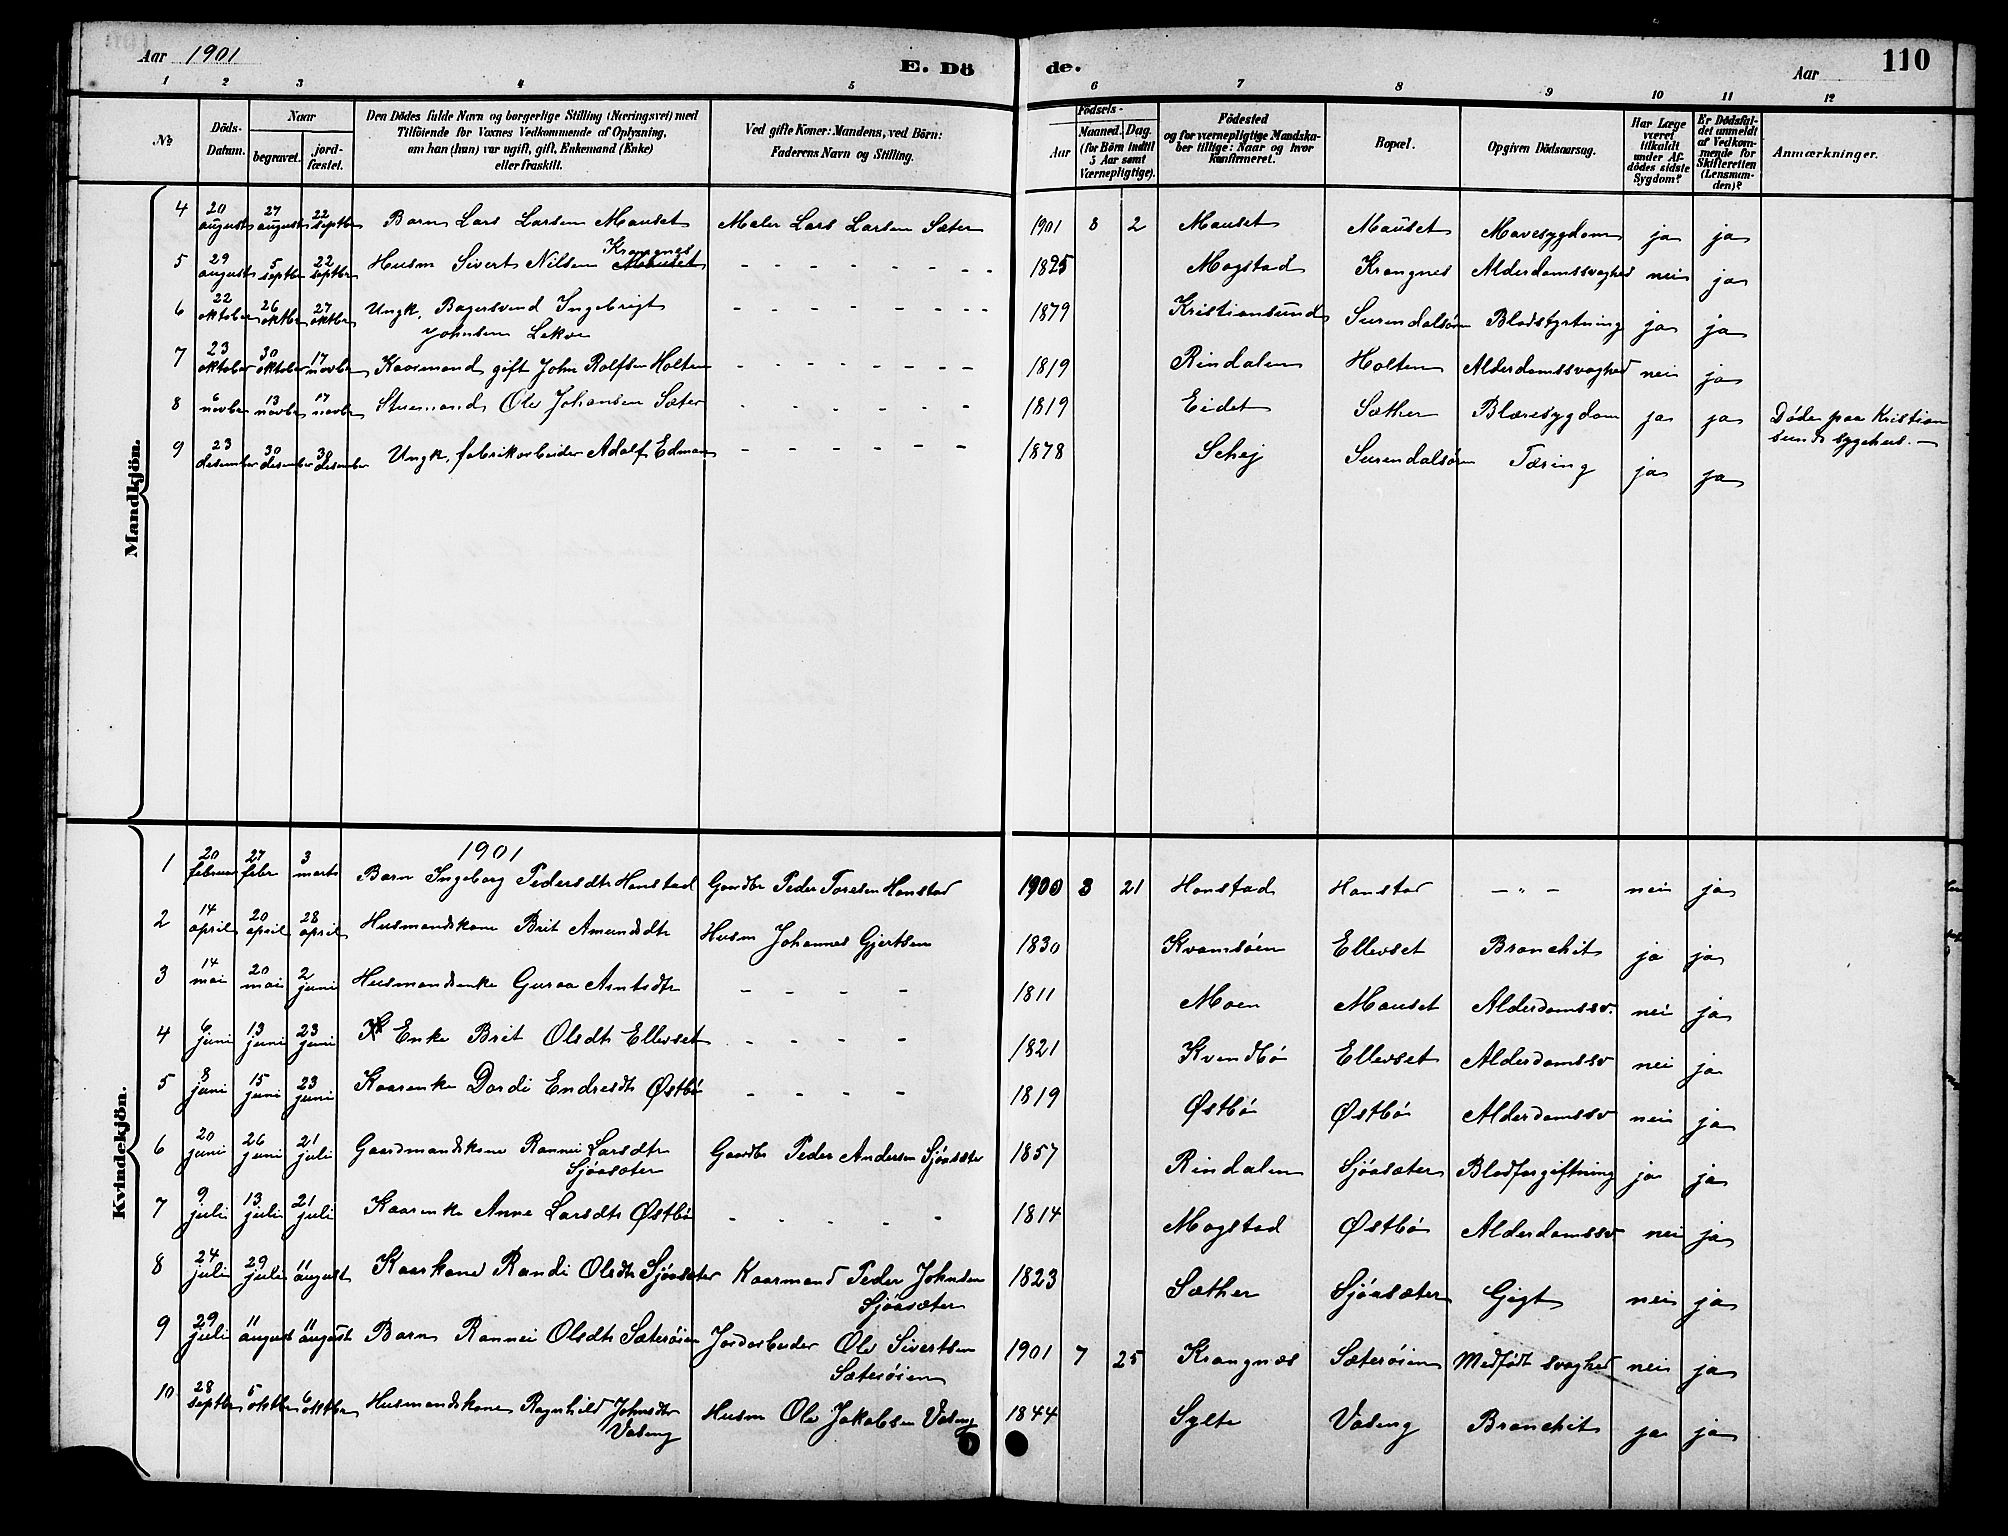 Aar 1901
E. Dö
de.
Aar
110
1 2 3 4 5 6 7 8 9 10 11 12
№
Döds-Datum.
Naar
begravet.
jord-fæstet.
Den Dödes fulde Navn og borgerlige Stilling (Næringsvei) med
Tilföiende for Voxnes Vedkommende af Oplysning,
om han (hun) var ugift, gift, Enkemand (Enke)
eller fraskilt.
Ved gifte Koner: Mandens, ved Börn:
Faderens Navn og Stilling.
Födsels-
Aar
Maaned. Dag.
(for Börn indtil
5 Aar samt
Værnepligtige).
Födested
og for værnepligtige Mandska-
ber tillige: Naar og hvor
konfirmeret.
Bopæl.
Opgiven Dödsaarsag.
Har Læge
været
tilkaldt
under Af-
dödes sidste
Sygdom?
Er Dödsfal-
det anmeldt
af Vedkom-
mende for
Skifteretten
(Lensman-
den)?
Anmærkninger.
Mandkjön.
4 20 august 27 august 22 septbr Barn Lars Larsen Mauset Maler Lars Larsen Sæter 1901 8 2 Mauset Mauset Mavesygdom ja ja
5 29 august 5 septbr 22 septbr Husm Sivert Nilsen Krangnes Mauset - - - - - - - - 1825 Mogstad Krangnes Alderdomssvaghed nei ja
6 22 oktober 26 oktbr 27 oktbr Ungk. Bagersvend Ingebrigt Johnsen Lekve - - - - - - - - 1879 Kristiansund Surendalsøren Blodstyrtning ja ja
7 23 oktober 30 oktober 17 novbr Kaarmand gift John Rolfsen Holten - - - - - - - - 1819 Rindalen Holten Alderdomssvaghed nei ja
8 6 novbr 13 novbr 17 novbr Stuemand Ole Johansen Sæter - - - - - - 1819 Eidet Sæther Blæresygdom ja ja Døde paa Kristian
sunds sygehus. —
9 23 desember 30 desember 30 desember Ungk. fabrikarbeider Adolf Edman - - - - - - - 1878 Schej Surendalsøren Tæring ja ja
Kvindekjön.
1901
1 20 februar 27 febr 3 marts Barn Ingeborg Pedersdtr Honstad Gaardbr Peder Toresen Honstad 1900 3 21 Honstad Honstad — " — nei ja
2 14 april 20 april 28 april Husmandskone Brit Amundsdtr Husm Johannes Gjertsen 1830 Kvamsøen Ellevset Bronchit ja ja
3 14 mai 20 mai 2 juni Husmandsenke Guroa Arntsdtr - - - - 1811 Moen Mauset Alderdomssv. nei ja
4 6 juni 13 juni 23 juni Enke Brit Olsdtr Ellevset - - - - 1821 Kvendbø Ellevset Alderdomssv nei ja
5 8 juni 15 juni 23 juni Kaarenke Dordi Endresdtr Østbø - - - - 1819 Østbø Østbø Alderdomssv nei ja
6 20 juni 26 juni 21 juli Gaardmandskone Rannei Larsdtr Sjøasæter Gaardbr Peder Andersen Sjøasæter 1857 Rindalen Sjøasæter Blodforgiftning ja ja
7 9 juli 13 juli 21 juli Kaarenke Anne Larsdtr Østbø - - - - - 1814 Mogstad Østbø Alderdomssv nei ja
8 24 juli 29 juli 11 august Kaarkone Randi Olsdtr Sjøasæter Kaarmand Peder Johnsen Sjøasæter 1823 Sæther Sjøasæter Gigt nei ja
9 29 juli 11 august 11 august Barn Rannei Olsdtr Sæterøien Jordarbeider Ole Sivertsen Sæterøien 1901 7 25 Krangnæs Sæterøien Medfødt svaghed nei ja
10 28 septbr 5 oktbr 6 oktbr Husmandskone Ragnhild Johnsdtr Vaseng Husm Ole Jakobsen Vaseng 1844 Sylte Vaseng Bronchit ja ja